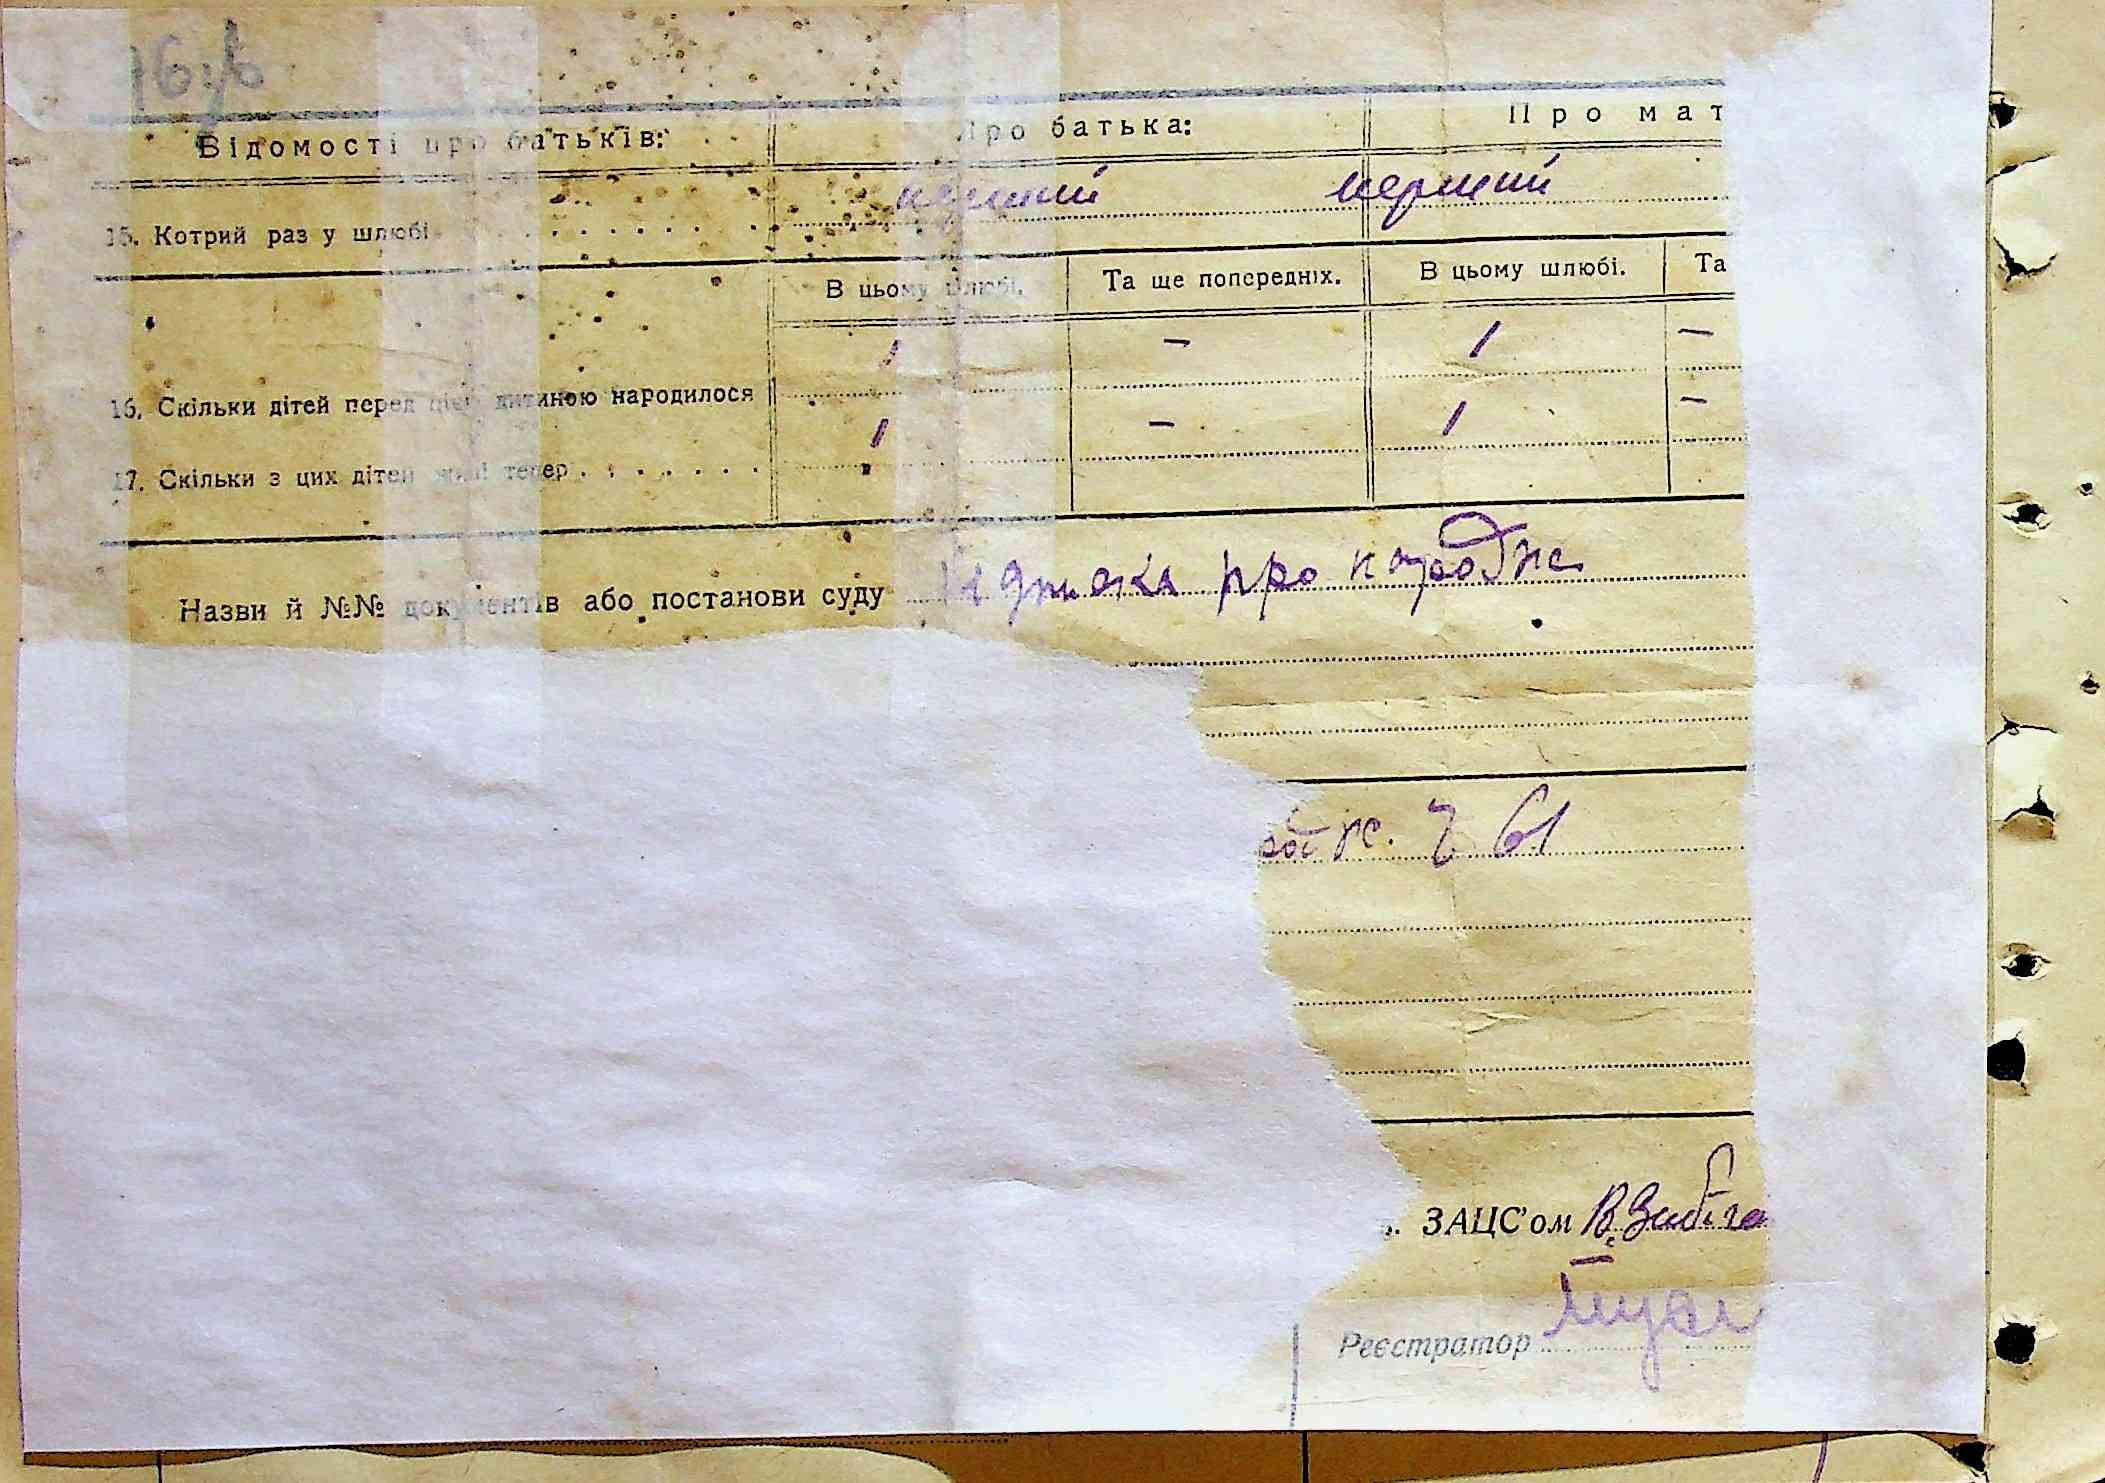 Відомості про батьків: Про батька: Про мат
перший перший
15. Котрий раз у шлюбі
В цьому шлюбі. Та ще попередніх. В цьому шлюбі. Та
1 – 1 –
16. Скільки дітей перед цією дитиною народилося
1 – 1 –
17. Скільки з цих дітей живі тепер
Назви й №№ документів або постанови суду про
61
ЗАЦС'ом
Реєстратор